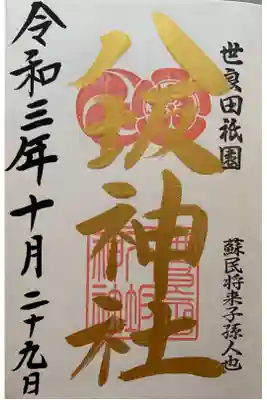 世良田祇園
蘇民将来子孫人也
八坂神社
令和三年十月二十九日